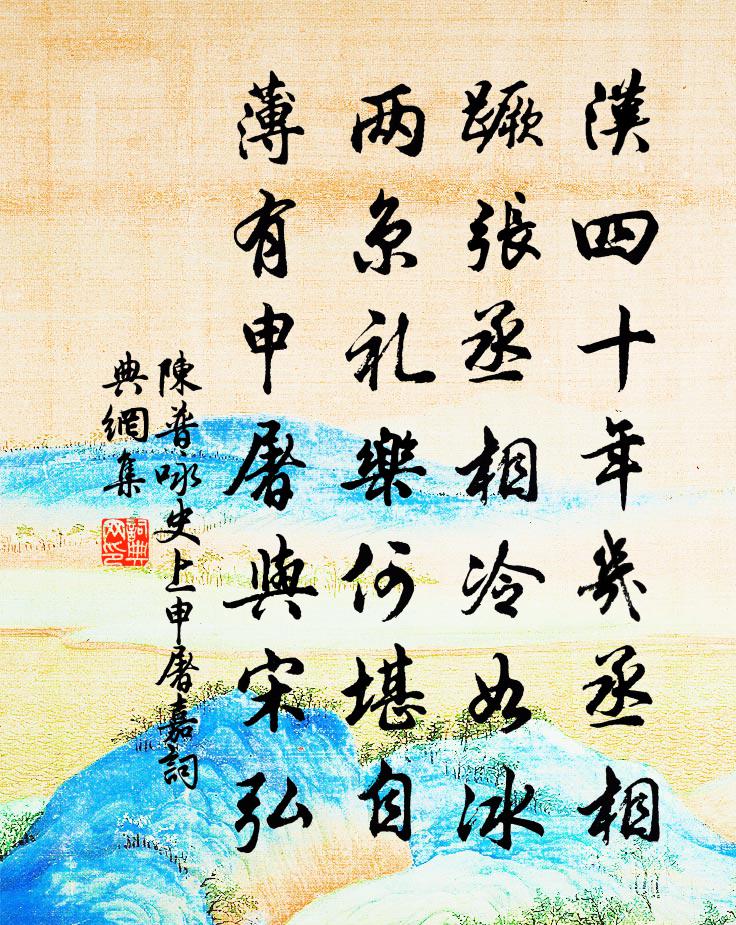 漢四十年幾丞相
蹶張丞相冷如冰
两京礼樂何堪自
薄有申屠與宋弘
陳普咏史上申屠嘉詞
典網集
詞典
网印